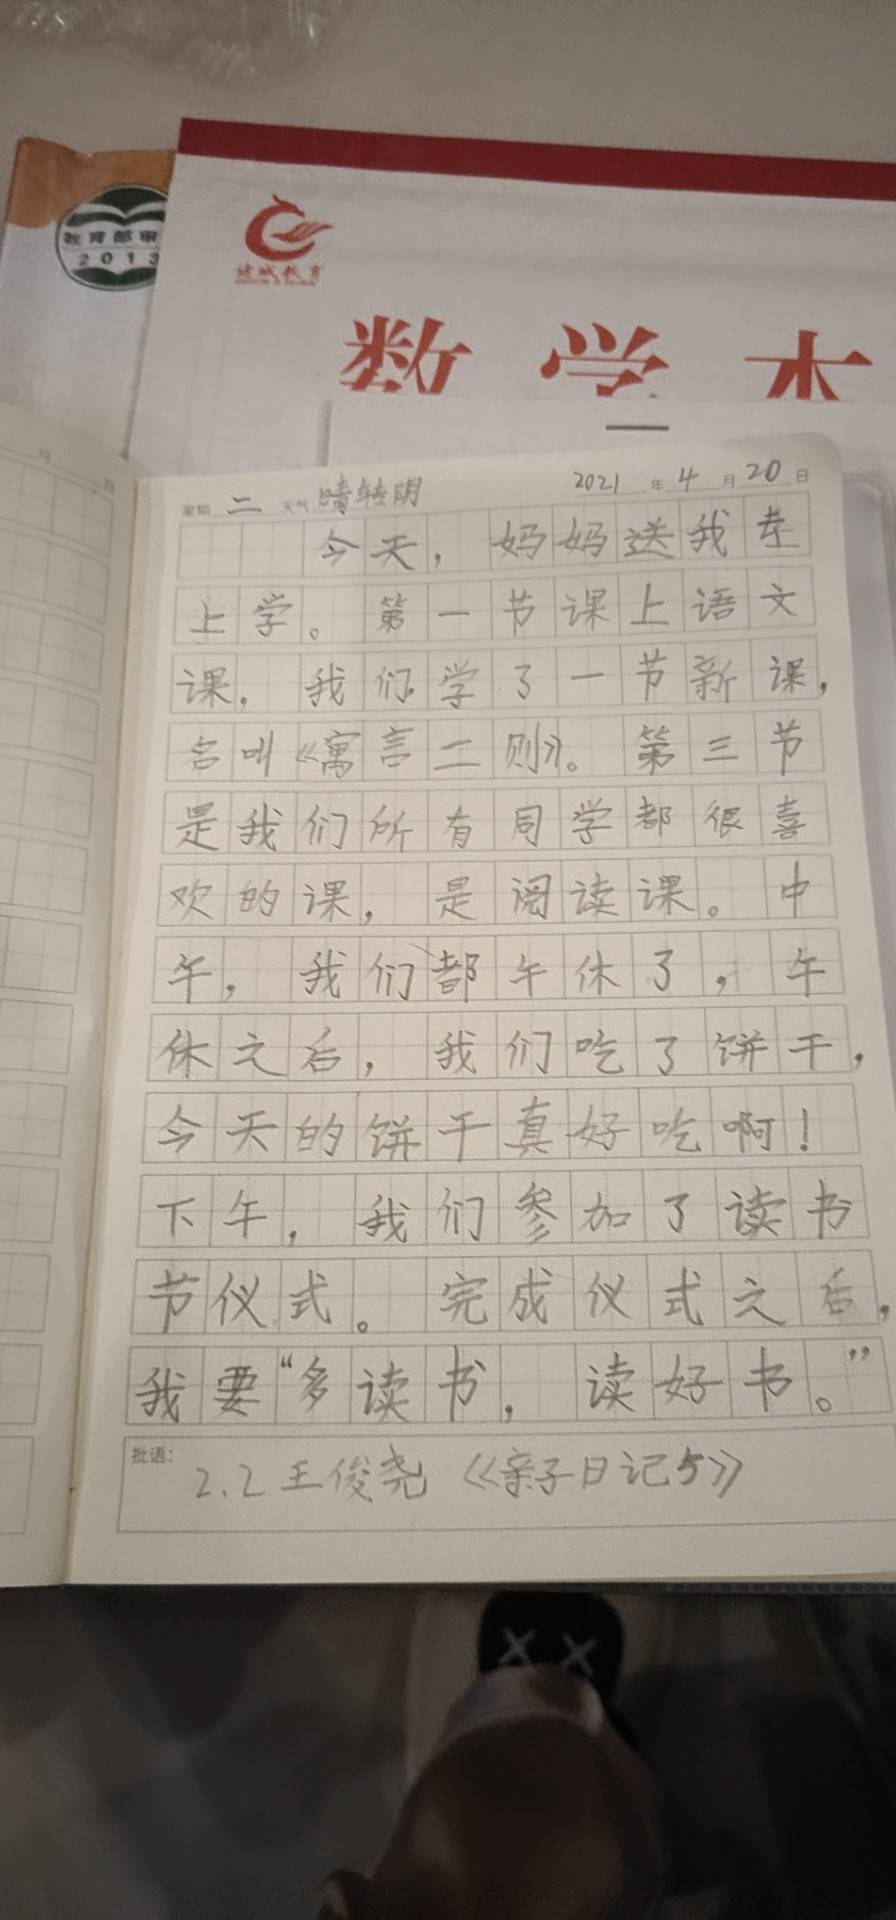 教育部审
2013
诸城教育
数学本
月 日
星期 二 天气 晴转阴 2021 年 4 月 20 日
今天，妈妈送我去
上学。第一节课上语文
课，我们学了一节新课，
名叫《寓言二则》。第三节
是我们所有同学都很喜
欢的课，是阅读课。中
午，我们都午休了，午
休之后，我们吃了饼干，
今天的饼干真好吃啊！
下午，我们参加了读书
节仪式。完成仪式之后，
我要“多读书，读好书。”
批语：
2.2 王俊尧《亲子日记5》